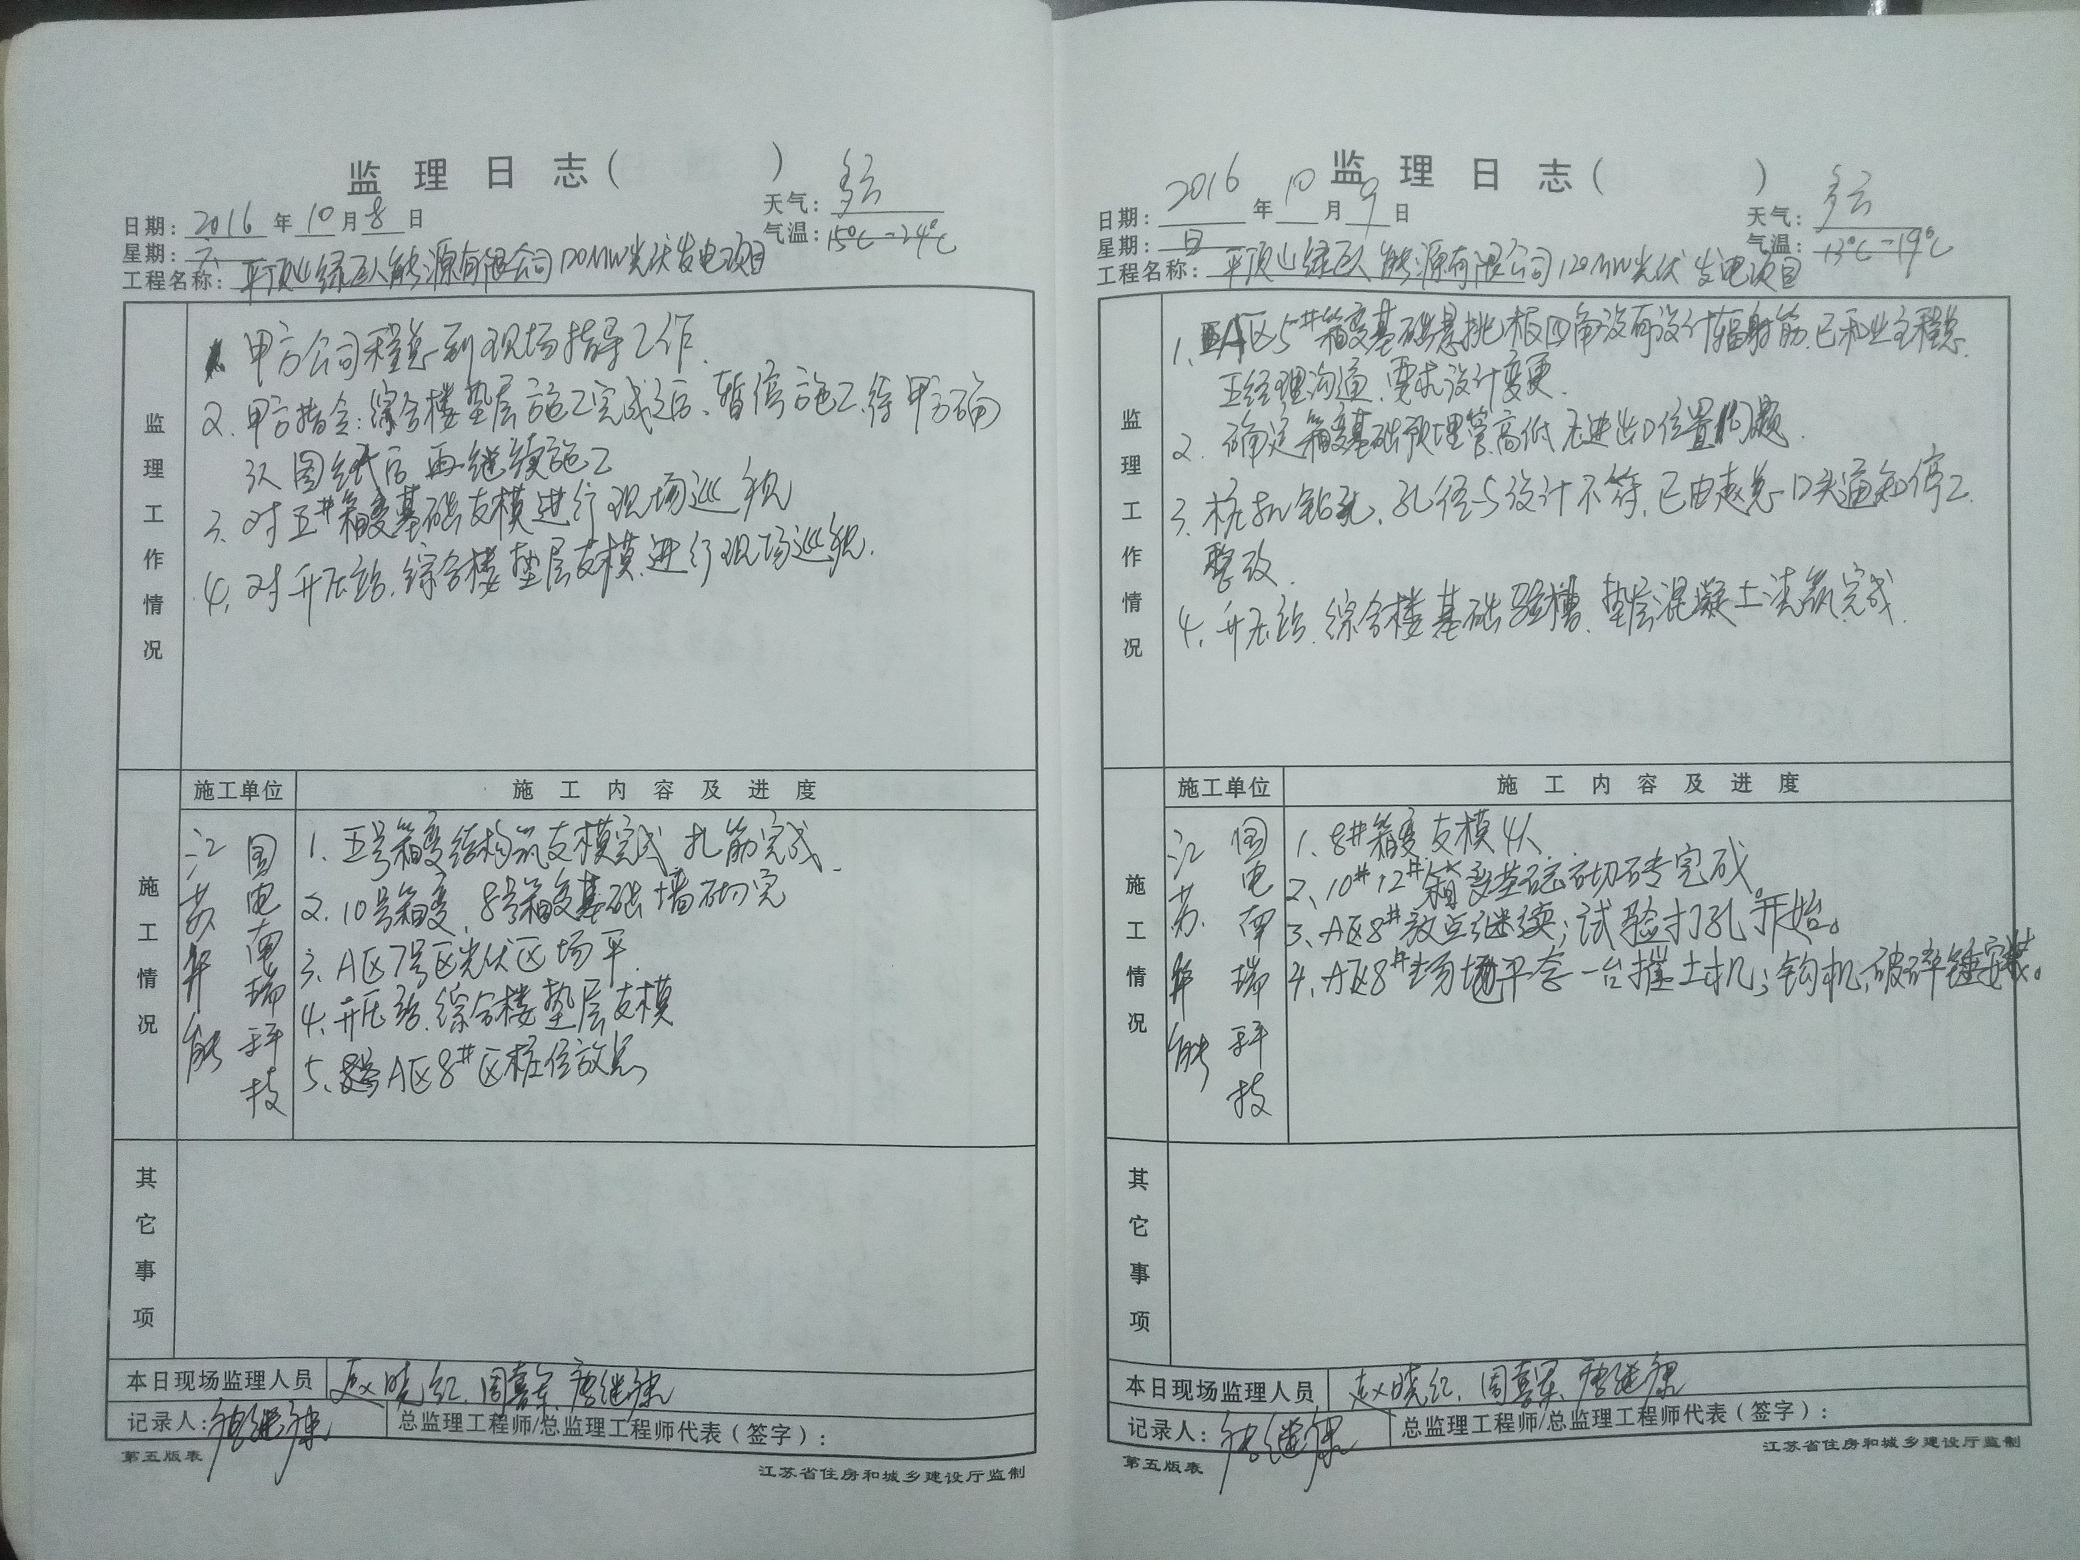 监 理 日 志 (          )
日期: 2016 年 10 月 8 日
天气: 多云
星期: 六
气温: 15℃-24℃
工程名称: 平顶山绿巨人能源有限公司120MW光伏发电项目
监理工作情况
1. 甲方公司程总到现场指导工作.
2. 甲方指令:综合楼垫层施工完成之后、暂停施工,待甲方确
认图纸后再继续施工
3. 对五#箱变基础支模进行现场巡视
4. 对升压站.综合楼垫层支模.进行现场巡视.
施工情况
施工单位
施 工 内 容 及 进 度
江苏华能
国电南瑞科技
1、五号箱变结构筑支模完成 扎筋完成.
2. 10号箱变、8号箱变基础墙砌完
3. A区7号区光伏区场平.
4、升压站.综合楼垫层支模
5、A区8#区桩位放点
其它事项
本日现场监理人员 赵晓红、周喜军、唐继康
记录人: 唐继康
总监理工程师/总监理工程师代表(签字):
第五版表
江苏省住房和城乡建设厅监制
监 理 日 志 (          )
日期: 2016 年 10 月 9 日
天气: 多云
星期: 日
气温: 13℃-19℃
工程名称: 平顶山绿巨人能源有限公司120MW光伏发电项目
监理工作情况
1、A区5#箱变基础悬挑板四角没有设计辐射筋.已和业主程总.
王经理沟通.要求设计变更.
2. 确定箱变基础预埋管高低及进出口位置问题.
3. 桩孔钻孔.孔径与设计不符.已由赵总口头通知停工
整改.
4. 升压站.综合楼基础验槽.垫层混凝土浇筑完成.
施工情况
施工单位
施 工 内 容 及 进 度
江苏华能
国电南瑞科技
1、8#箱变支模4人
2、10#12#箱变基础砌砖完成。
3、A区8#放点继续;试验打孔开始。
4、A区8#场地平李一台推土机;钩机、破碎锤安装。
其它事项
本日现场监理人员 赵晓红、周喜军、唐继康
记录人: 唐继康
总监理工程师/总监理工程师代表(签字):
第五版表
江苏省住房和城乡建设厅监制